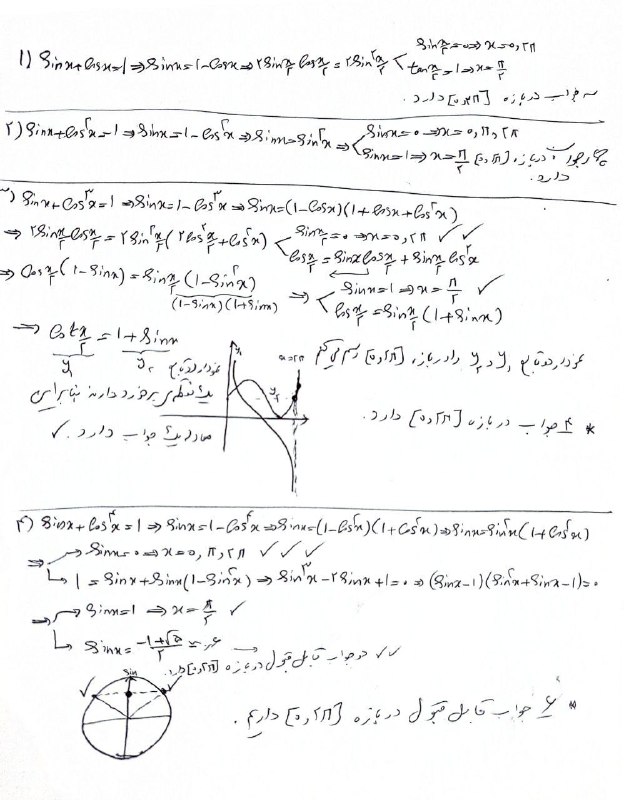 ۱) Sinx+Cosx=1 ⇒ Sinx=1-Cosx ⇒ ۲Sin x/۲ Cos x/۲ = ۲Sin²x/۲ < Sin x/۲=0 ⇒ x=0,۲π
tan x/۲=1 ⇒ x=π/۲
سه جواب در بازه [0,۲π] دارد.
۲) Sinx+Cos²x=1 ⇒ Sinx=1-Cos²x ⇒ Sinx=Sin²x ⇒ < Sinx=0 ⇒ x=0,π,۲π
Sinx=1 ⇒ x=π/۲
چهار جواب در بازه [0,۲π] دارد.
۳) Sinx+Cos³x=1 ⇒ Sinx=1-Cos³x ⇒ Sinx=(1-Cosx)(1+Cosx+Cos²x)
⇒ ۲Sin x/۲ Cos x/۲ = ۲Sin²x/۲ (۲Cos²x/۲+Cos²x) < Sin x/۲=0 ⇒ x=0,۲π ✓ ✓
Cos x/۲ = Sinx Cos x/۲ + Sin x/۲ Cos²x
⇒ Cos x/۲ (1-Sinx) = Sin x/۲ (1-Sin²x) ⇒ < Sinx=1 ⇒ x=π/۲ ✓
(1-Sinx)(1+Sinx)
Cos x/۲ = Sin x/۲ (1+Sinx)
⇒ Cot x/۲ = 1+Sinx
y₁ y₂
نمودار دو تابع y₁ و y₂ را در بازه [0,۲π] رسم می کنیم
نمودار دو تابع
یک نقطه برخورد دارند بنابراین
معادله یک جواب دارد. ✓
y₁
y₂
x=۲π
* ۴ جواب در بازه [0,۲π] دارد.
۴) Sinx+Cos⁴x=1 ⇒ Sinx=1-Cos⁴x ⇒ Sinx=(1-Cos²x)(1+Cos²x) ⇒ Sinx=Sin²x(1+Cos²x)
⇒ Sinx=0 ⇒ x=0,π,۲π ✓ ✓ ✓
1=Sinx+Sinx(1-Sin²x) ⇒ Sin³x-۲Sinx+1=0 ⇒ (Sinx-1)(Sin²x+Sinx-1)=0
⇒ Sinx=1 ⇒ x=π/۲ ✓
Sinx = (-1+√۵)/۲ ≃ ۰٫۶ → دو جواب قابل قبول در بازه [0,۲π] دارد. ✓✓
Sin
* ۶ جواب قابل قبول در بازه [0,۲π] داریم.